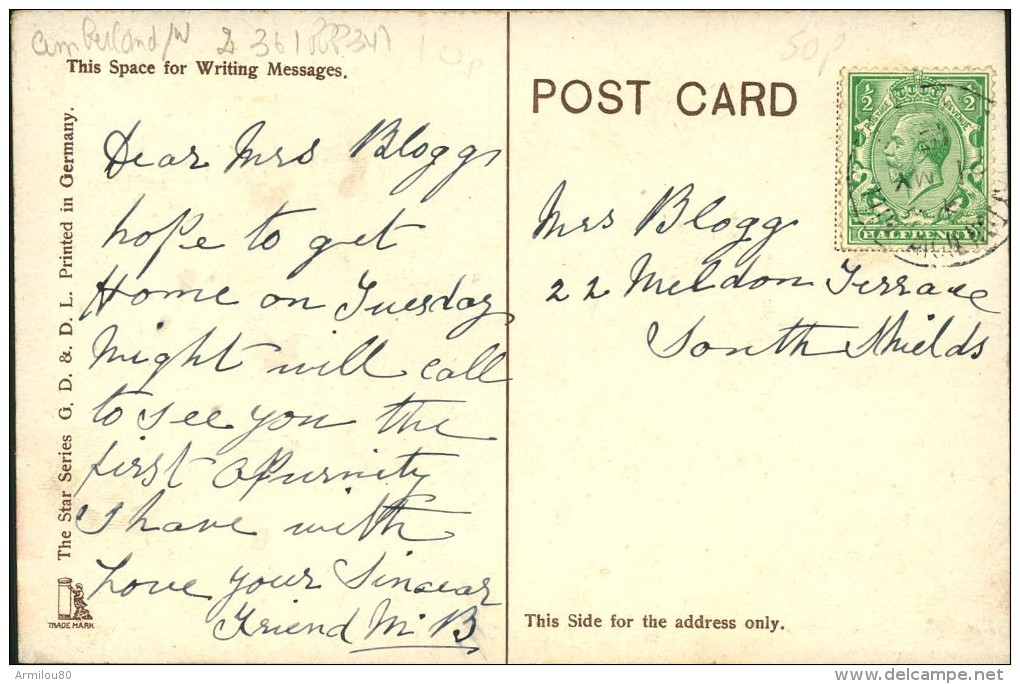 This Space for Writing Messages.
Dear Mrs Bloggs
hope to get
Home on Tuesday
Night will call
to see you the
first Opurnity
I have with
Love your Sincear
Friend M. B.
The Star Series G. D. & D. L. Printed in Germany.
TRADE MARK
POST CARD
½ ½
POSTAGE REVENUE
HALFPENNY
Mrs Blogg
22 Meldon Terrace
South Shields
This Side for the address only.
50p
Armilou80
delcampe.net